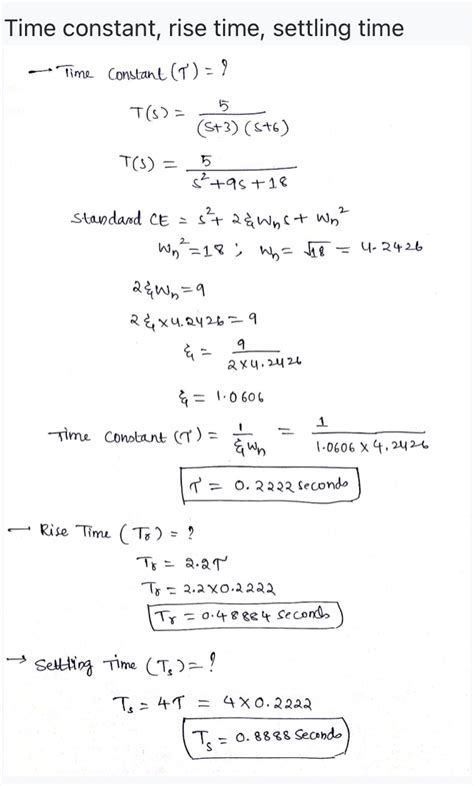 Time constant, rise time, settling time
→ Time Constant (τ) = ?
T(s) = 5 / (s+3) (s+6)
T(s) = 5 / s²+9s+18
Standard CE = s²+ 2ξWₙs + Wₙ²
Wₙ²=18 ; Wₙ= √18 = 4.2426
2ξWₙ=9
2ξ×4.2426=9
ξ = 9 / 2×4.2426
ξ = 1.0606
Time Constant (τ) = 1 / ξWₙ = 1 / 1.0606 × 4.2426
τ = 0.2222 seconds
→ Rise Time (Tr) = ?
Tr = 2.2τ
Tr = 2.2×0.2222
Tr = 0.48884 seconds
→ Settling Time (Ts)=?
Ts = 4τ = 4×0.2222
Ts = 0.8888 seconds